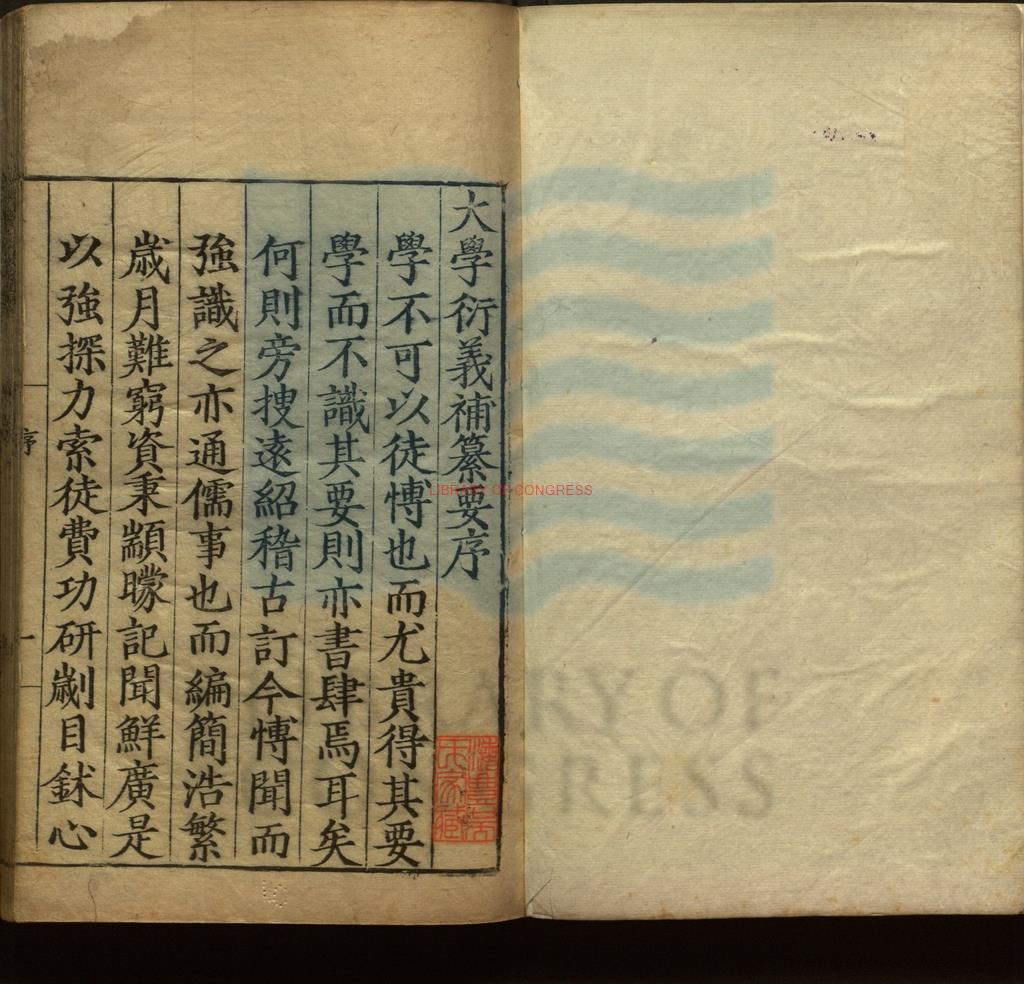 大學衍義補纂要序
學不可以徒愽也而尤貴得其要
學而不識其要則亦書肆焉耳矣
何則旁搜遠紹稽古訂今愽聞而
強識之亦通儒事也而編簡浩繁
歲月難窮資秉顓矇記聞鮮廣是
以強探力索徒費功研劌目鉥心
序
一
LIBRARY OF CONGRESS